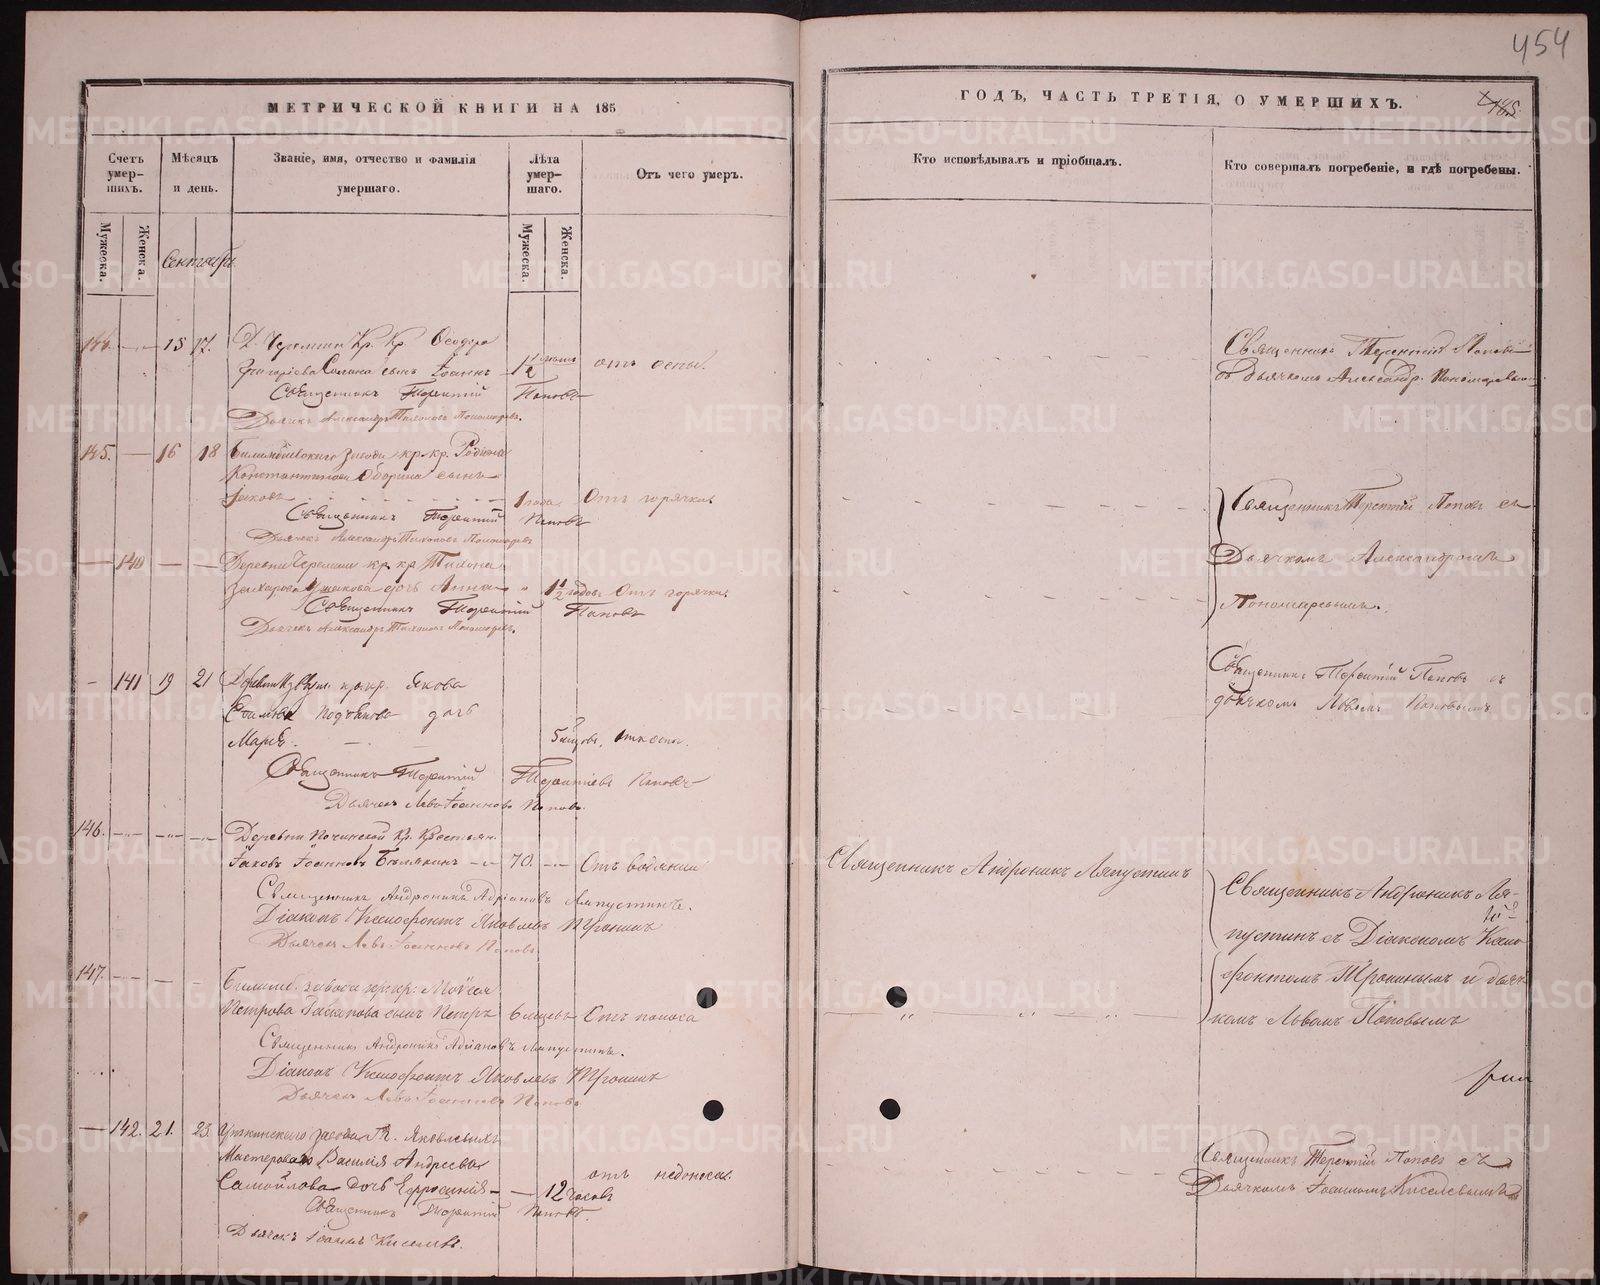 454
МЕТРИЧЕСКОЙ КНИГИ НА 185
ГОДЪ, ЧАСТЬ ТРЕТІЯ, О УМЕРШИХЪ.
Счетъ умер-шихъ.
Мѣсяцъ и день.
Званіе, имя, отчество и фамилія умершаго.
Лѣта умер-шаго.
Отъ чего умеръ.
Кто исповѣдывалъ и пріобщалъ.
Кто совершалъ погребеніе, и гдѣ погребены.
Мужеска.
Женска.
Сентябрь
Мужеска.
Женска.
144. 15 17. Д. Черемши Кр. Кр. Ѳеодора
Григоріева сынъ Іоаннъ 1 1/2 отъ оспы.
Священникъ Терентій Поповъ
Дьячекъ Александръ Тихоновъ Пономаревъ.
Священникъ Терентій Поповъ
съ дьячкомъ Александр. Пономаревымъ
145. 16 18 Билимбаевскаго завода кр. кр. Родіона
Константинова Оборина сынъ
Іаковъ 1 года Отъ горячки.
Священникъ Терентій Поповъ
Дьячекъ Александръ Тихоновъ Пономаревъ
140 Деревни Черемши кр. кр. Тихона
Захарова дочь Анна 1 1/2 годовъ Отъ горячки.
Священникъ Терентій Поповъ
Дьячекъ Александръ Тихоновъ Пономаревъ.
Священникъ Терентій Поповъ съ
Дьячкомъ Александромъ
Пономаревымъ.
141 19 21 Деревни кр. кр. Якова
дочь
Марія. 5 мѣсяцовъ. отъ оспы.
Священникъ Терентій Терентіевъ Поповъ
Дьячекъ Левъ Іоанновъ Поповъ.
Священникъ Терентій Поповъ съ
дьячкомъ Львомъ Поповымъ.
146. Деревни Починской Кр. Крестьян.
Іаковъ Іоанновъ 70. Отъ водянки
Священникъ Андроникъ Адріановъ Ляпустинъ.
Діаконъ Ксенофонтъ Яковлевъ Тронинъ
Дьячекъ Левъ Іоанновъ Поповъ.
Священникъ Андроникъ Ляпустинъ
Священникъ Андроникъ Ля-
пустинъ съ Діакономъ Ксено
фонтомъ Тронинымъ и дьяч
комъ Львомъ Поповымъ
147. Билимб. завода кр. кр. Моѵсея
Петрова сынъ Петръ 6 мѣсяц. Отъ поноса
Священникъ Андроникъ Адріановъ Ляпустинъ.
Діаконъ Ксенофонтъ Яковлевъ Тронинъ
Дьячекъ Левъ Іоанновъ Поповъ
142. 21. 23. Уткинскаго завода Гг. Яковлевыхъ
Мастероваго Василія Андреева
Самойлова дочь Евфросинія 12 часовъ отъ недоноска.
Священникъ Терентій Поповъ.
Дьячекъ Іоаннъ Киселевъ.
Священникъ Терентій Поповъ съ
Дьячкомъ Іоанномъ Киселевымъ
METRIKI.GASO-URAL.RU